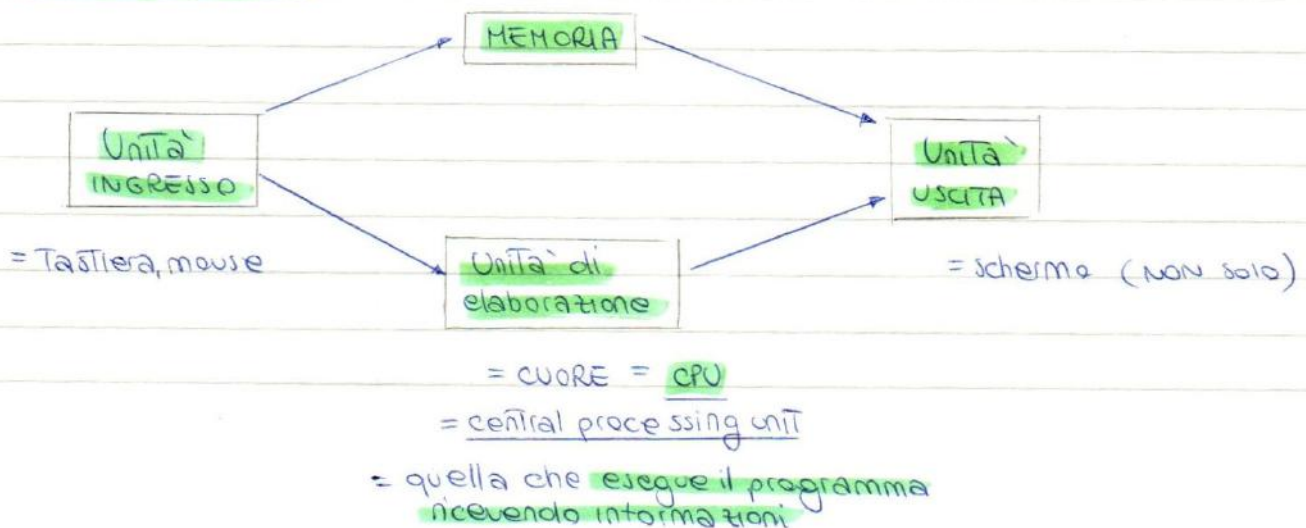 MEMORIA
Unità
INGRESSO
= Tastiera, mouse
Unità di
elaborazione
Unità
USCITA
= schermo (NON solo)
= CUORE = CPU
= central processing unit
= quella che esegue il programma
ricevendo informazioni